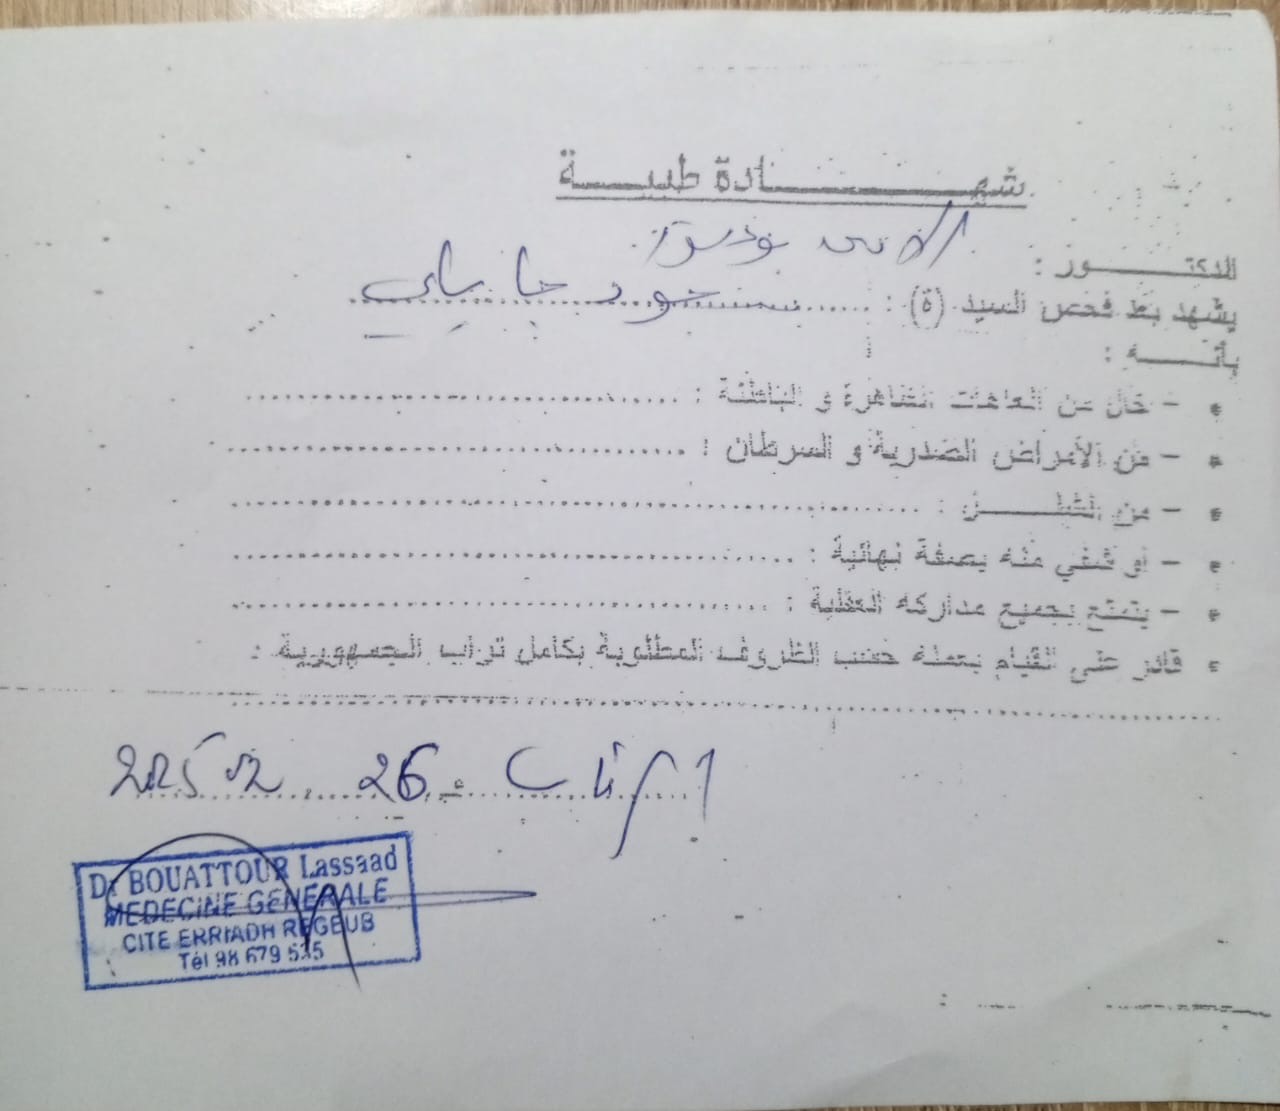 شهادة طبية
الدكتور :
يشهد بعد فحص السيد (ة) :
بأنه :
* - خال من العاهات الظاهرة و الباطنة :
* - من الأمراض الصدرية و السرطان :
* - من الشلل :
* - أو شفي منه بصفة نهائية :
* - يتمتع بجميع مداركه العقلية :
* قادر على القيام بعمله حسب الظروف المطلوبة بكامل تراب الجمهورية :
الرقاب في 26
Dr BOUATTOUR Lassaad
MEDECINE GENERALE
CITE ERRIADH REGEUB
Tél 98 679 535